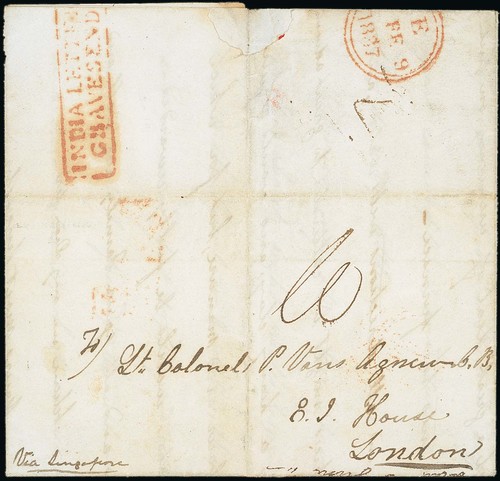 INDIA LETTER
GRAVESEND
E
FE 9
1837
Lt. Colonel P. Vans Agnew C.B,
E. I. House
London
Via Singapore